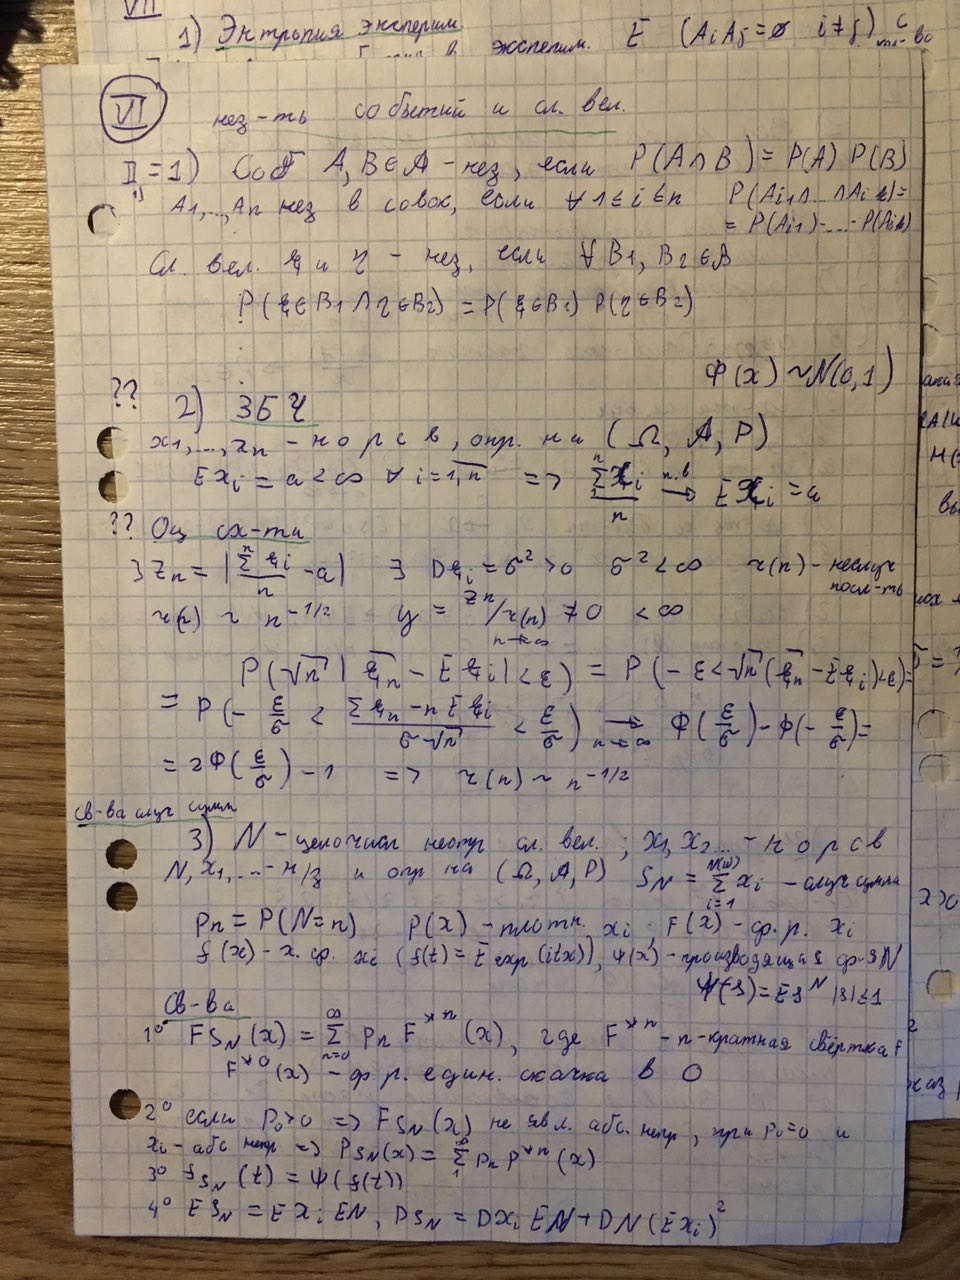 VII
1) Энтропия эксперим.
в эксперим. E (AiAj=∅ i≠j) с
VI
нез-ть событий и сл. вел.
II=1) Соб A, B∈A - нез, если P(A∩B) = P(A) P(B)
1) A1,...,An нез в совок, если ∀ 1≤i≤n P(Ai1∩...∩Aik)=
= P(Ai1)·...·P(Aik)
Сл. вел. ξ и η - нез, если ∀ B1, B2 ∈A
P(ξ∈B1 ∩ η∈B2) = P(ξ∈B1) P(η∈B2)
Φ(x) ~ N(0,1)
?? 2) ЗБЧ
x1,...,xn - н о р с в, опр. на (Ω, A, P)
Exi = a < ∞ ∀ i=1,n => Σxi/n п.в → Exi = a
?? Оц сх-ти
Zn = |Σξi/n - a| ∃ Dξi = σ² > 0 σ² < ∞ r(n) - неслуч
посл-ть
r(n) ~ n^-1/2 y = Zn/r(n) ≠ 0 < ∞
n→∞
P(√n |ξn - Eξi| < ε) = P(-ε < √n (ξn - Eξi) < ε) =
= P(-ε/σ < (Σξn - nEξi)/(σ√n) < ε/σ) →n→∞ Φ(ε/σ) - Φ(-ε/σ) =
= 2Φ(ε/σ) - 1 => r(n) ~ n^-1/2
св-ва случ сумм
3) N - целочисл неотр сл. вел.; x1, x2... - н о р с в
N, x1,... - н/з и опр на (Ω, A, P) SN = Σ i=1 N(ω) xi - случ сумма
Pn = P(N=n) P(x) - плотн. xi F(x) - ф. р. xi
f(x) - х. ф. xi (f(t) = E exp(itx)), ψ(x) - производящая ф-я N
ψ(s) = E s^N |s|≤1
Св-ва
1° FSN(x) = Σ n=0 ∞ Pn F^*n (x), где F^*n - n-кратная свёртка F
F^*0(x) - ф. р. един. скачка в 0
2° если P0>0 => FSN(x) не явл. абс. непр, при P0=0 и
xi - абс непр => PSN(x) = Σ 1 ∞ Pn P^*n (x)
3° fSN(t) = ψ(f(t))
4° ESN = Exi EN, DSN = Dxi EN + DN (Exi)²